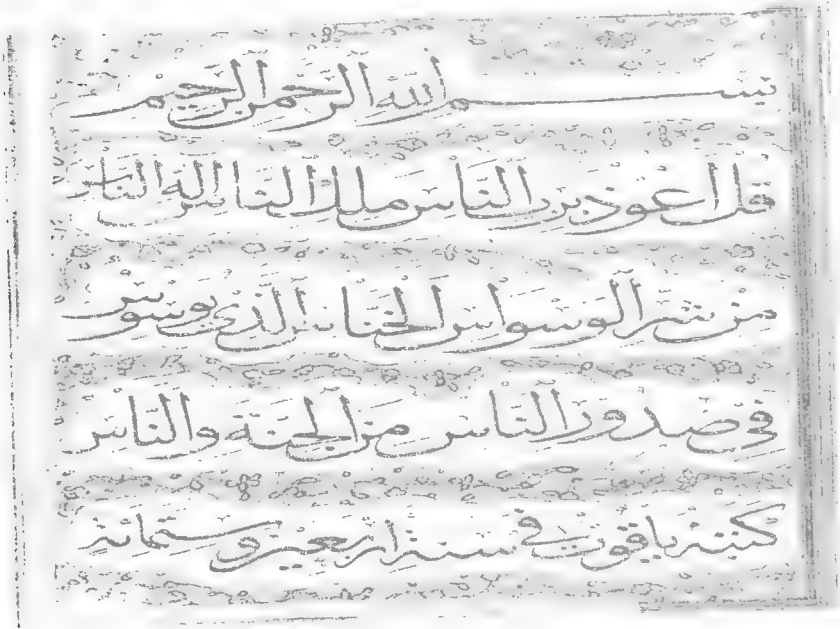 بسم الله الرحمن الرحيم
قل أعوذ برب الناس ملك الناس إله الناس
من شر الوسواس الخناس الذي يوسوس
في صدور الناس من الجنة والناس
كتبه ياقوت في سنة أربعين وستمائة